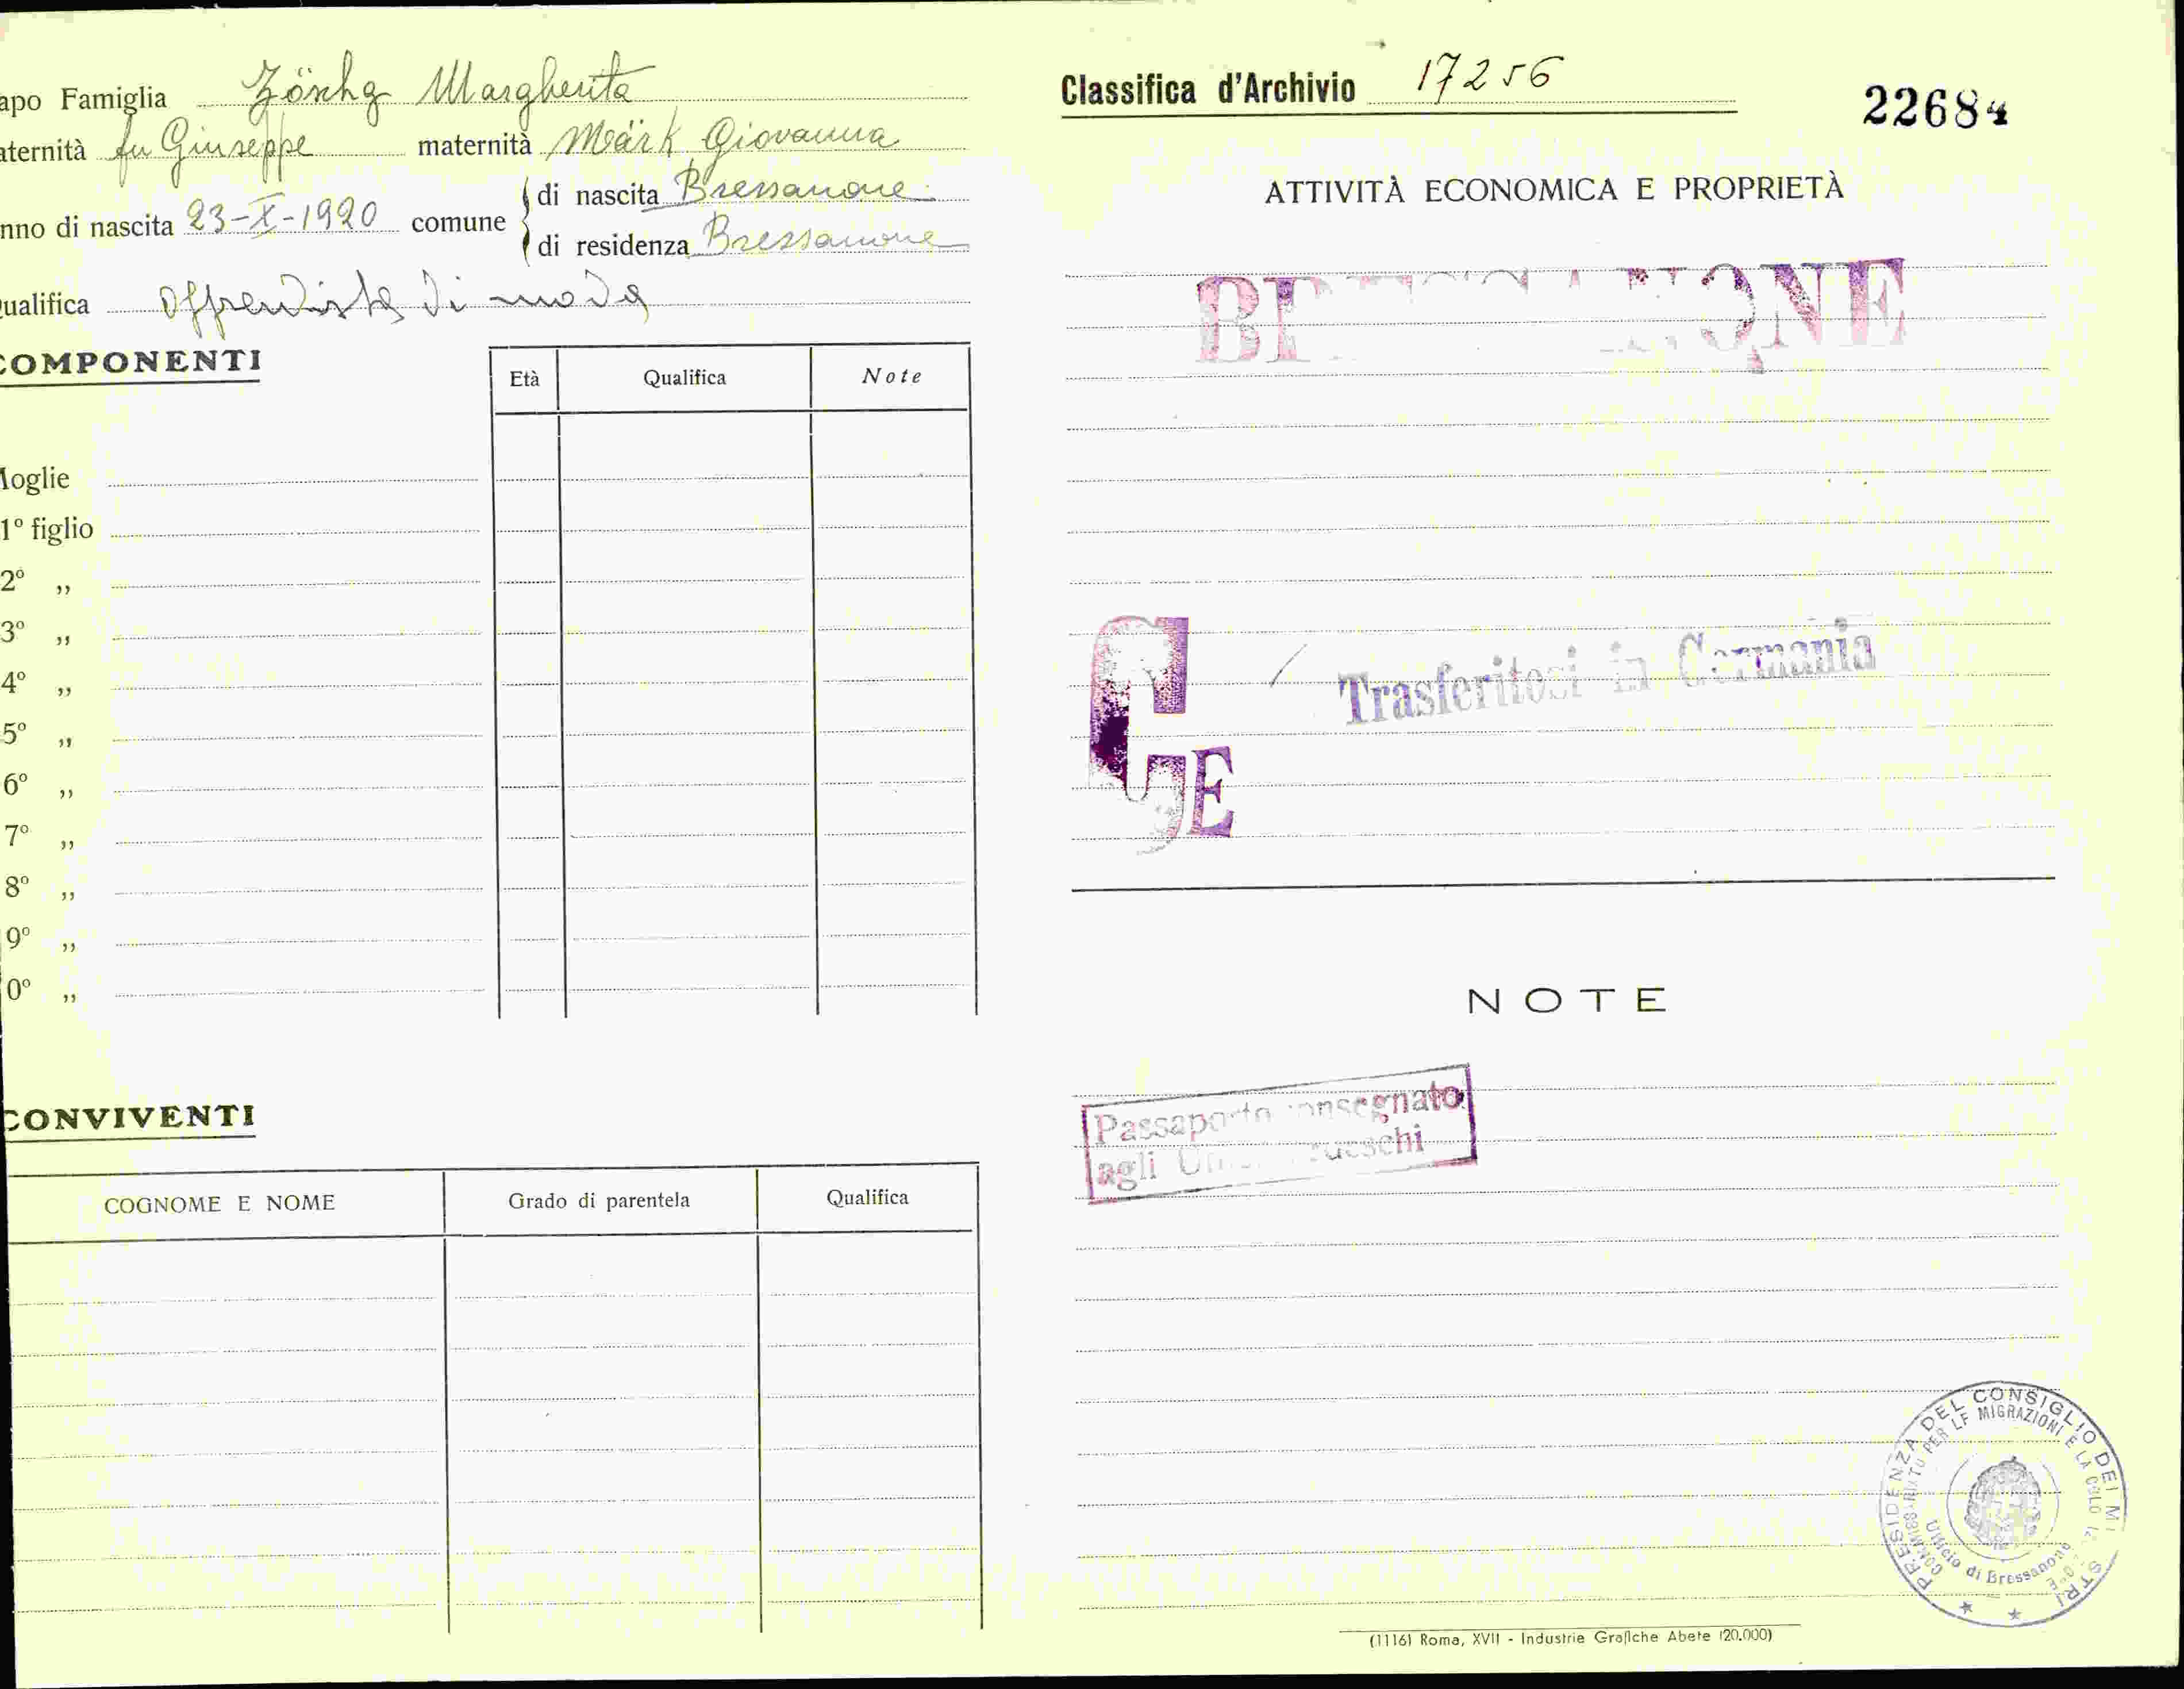 apo Famiglia Zöschg Margherita
aternità fu Giuseppe maternità Märk Giovanna
nno di nascita 23-X-1920 comune di nascita Bressanone
di residenza Bressanone
ualifica apprendista di moda
COMPONENTI
Età Qualifica Note
Moglie
1º figlio
2º ,,
3º ,,
4º ,,
5º ,,
6º ,,
7º ,,
8º ,,
9º ,,
0º ,,
CONVIVENTI
COGNOME E NOME Grado di parentela Qualifica
Classifica d'Archivio 17256
22684
ATTIVITÀ ECONOMICA E PROPRIETÀ
BRESSANONE
G E
Trasferitosi in Germania
NOTE
Passaporto consegnato
agli Uffici tedeschi
PRESIDENZA DEL CONSIGLIO DEI MINISTRI
COMMISSARIATO PER LE MIGRAZIONI E LA COLONIZZAZIONE
Ufficio di Bressanone
(1116) Roma, XVII - Industrie Grafiche Abete (20.000)